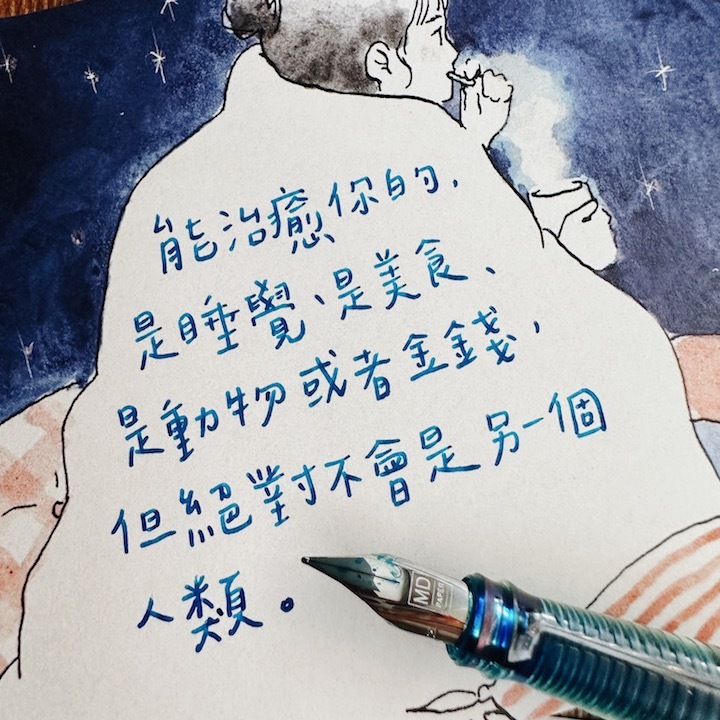 能治癒你的,
是睡覺、是美食、
是動物或者金錢,
但絕對不會是另一個
人類。
MD
PAPER